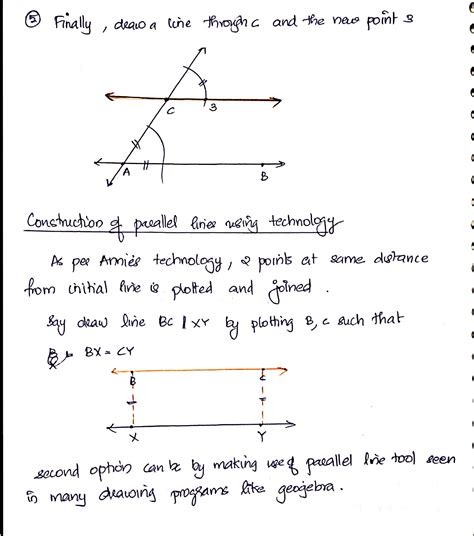 ⑤ Finally, draw a line through C and the new point 3
C
3
A
B
Construction of parallel lines using technology
As per Annie's technology, 2 points at same distance
from initial line is plotted and joined.
Say draw line BC || XY by plotting B, C such that
BX = CY
B
C
X
Y
second option can be by making use of parallel line tool seen
in many drawing programs like geogebra.